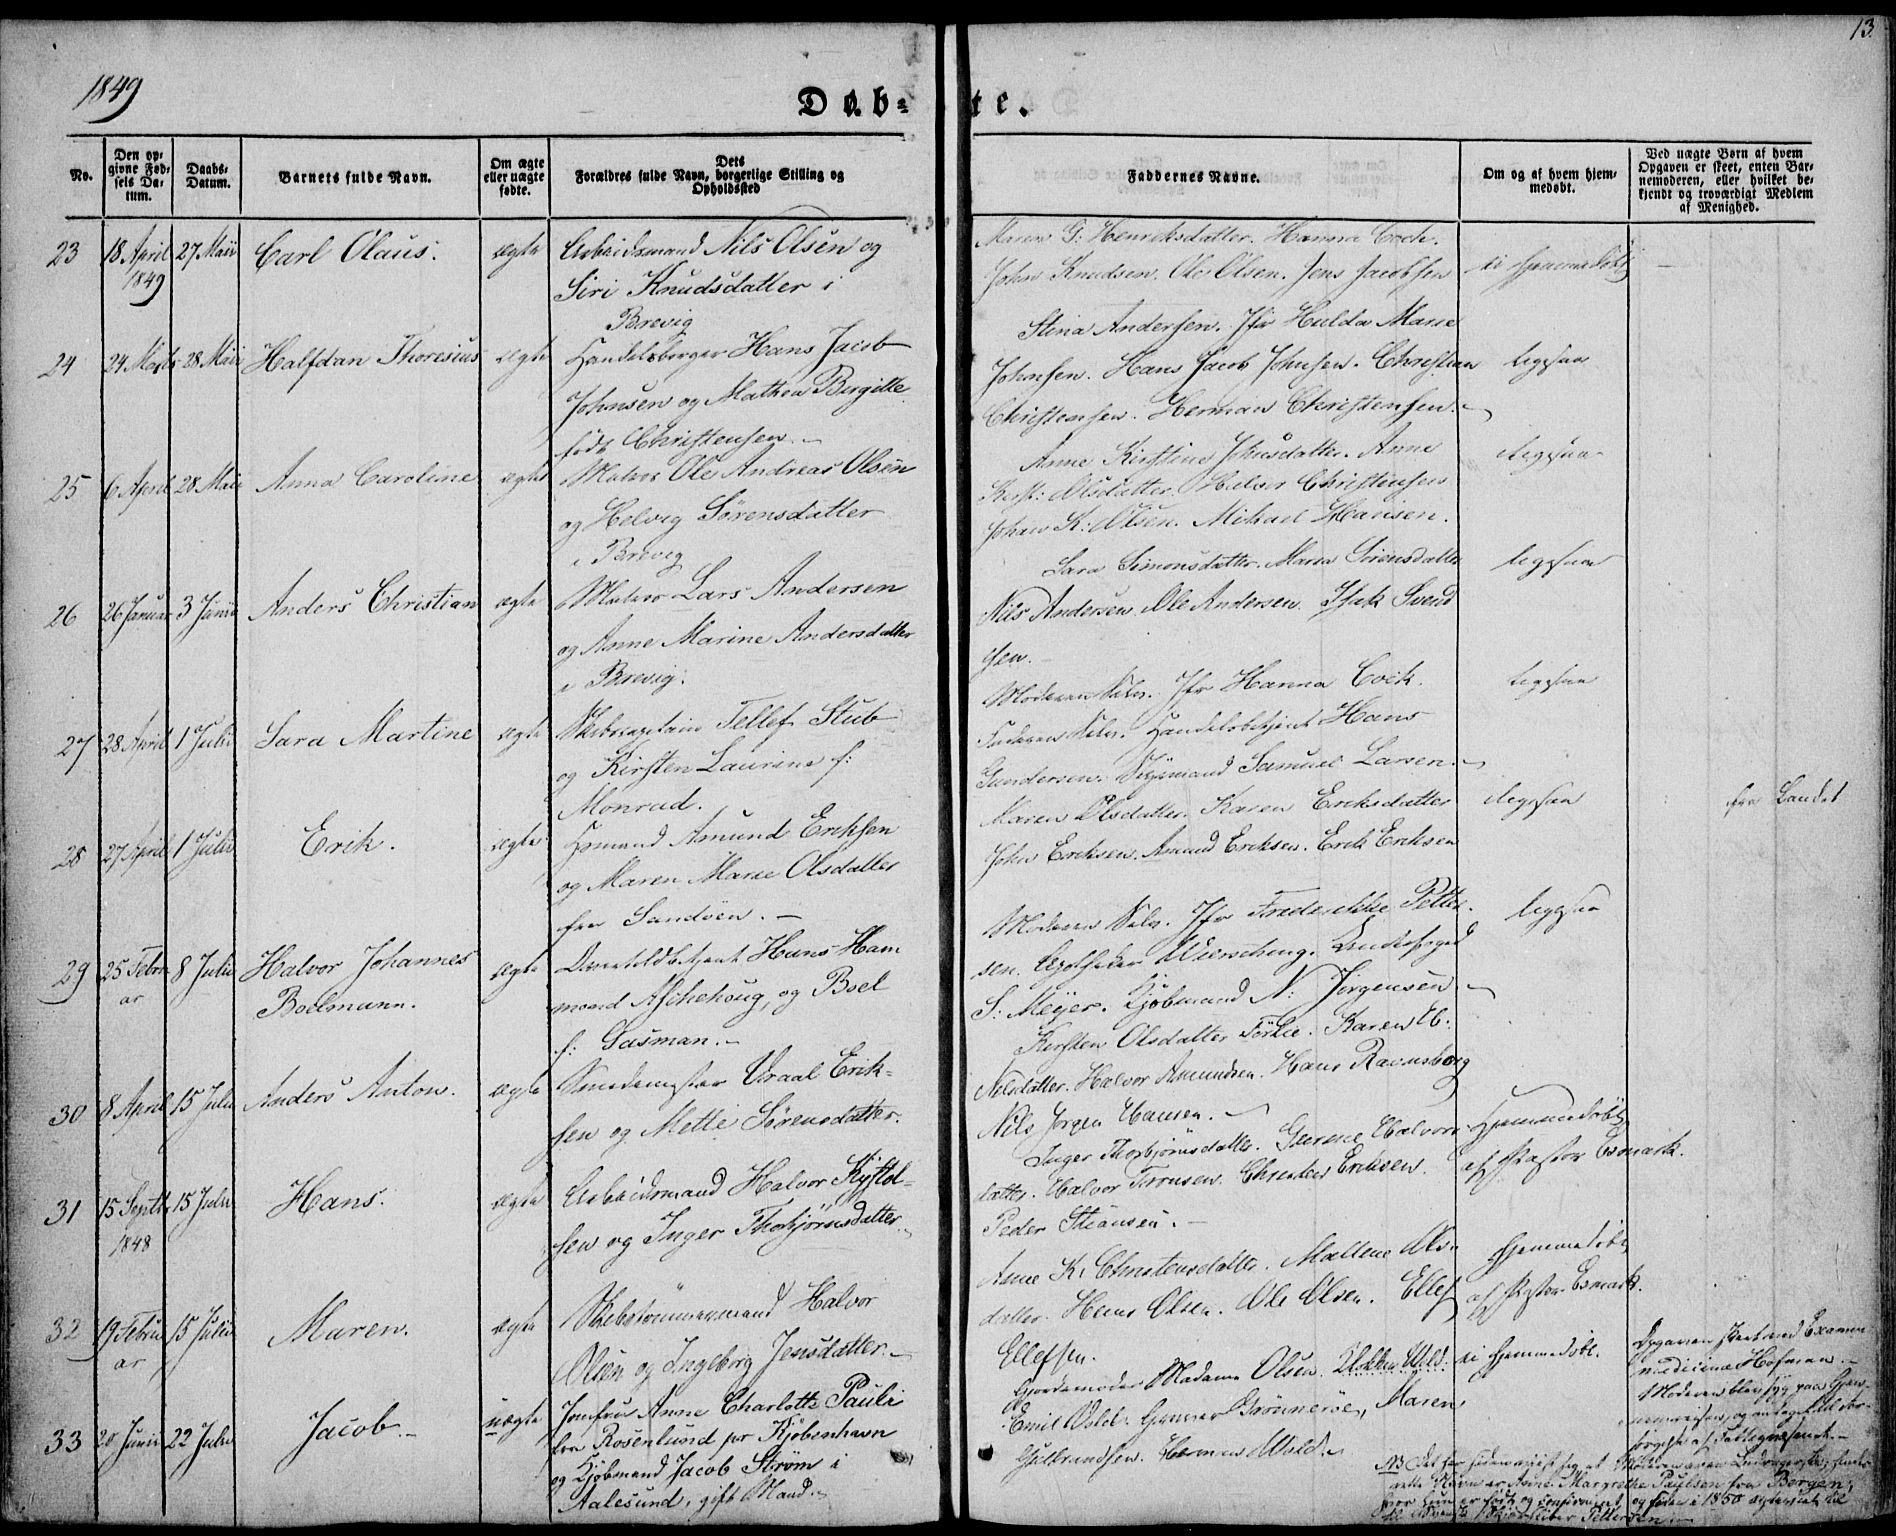 13.
1849
Døb-
te.
No.
Den op-
givne Fød-
sels Da-
tum.
Daabs-
Datum.
Barnets fulde Navn.
Om ægte
eller uægte
fødte.
Dets
Forældres fulde Navn, borgerlige Stilling og
Opholdssted
Faddernes Navne.
Om og af hvem hjem-
medøbt.
Ved uægte Børn af hvem
Opgaven er skeet, enten Bar-
nemoderen, eller hvilket be-
kjendt og troværdigt Medlem
af Menighed.
23
18 April
1849
27 Maii
Carl Olaus.
ægte
Arbeidsmand Nils Olsen og
Siri Knudsdatter i
Brevig
Maren G: Henriksdatter. Hanna Cock.
John Knudsen. Ole Olsen. Jens Jacobsen
ei hjemmedøbt
24
24 Marts
28 Maii
Halfdan Thoresius
ægte
Handelsborger Hans Jacob
Johnsen og Mathea Birgitte
født Christensen.
Stina Andersen. Jfr Hulda Marie
Johnsen. Hans Jacob Johnsen. Christian
Christensen. Herman Christensen.
ligesaa
25
6 April
28 Maii
Anna Caroline
ægte
Matros Ole Andreas Olsen
og Helvig Sørensdatter
i Brevig
Anne Kirstine Johnsdatter. Anne
Kirst: Olsdatter. Halvor Christensen
Johan K: Olsen. Mikael Hansen.
ligesaa
26
26 Januar
3 Junii
Anders Christian
ægte
Matros Lars Andersen
og Anne Marine Andersdatter
i Brevig.
Sara Simonsdatter. Maria Sørensdatter
Nils Andersen Ole Andersen. Isak Svend
sen.
ligesaa
27
28 April
1 Julii
Sara Martine
ægte
Skibscapitain Tellef Stub
og Kirsten Laurine f:
Monrad.
Moderen selv. Jfr Hanna Cock.
Faderen selv. Handelsbetjent Hans
Gundersen. Samuel Larsen.
ligesaa
28
27 April
1 Julii
Erik.
ægte
Amund Eriksen
og Maren Marie Olsdatter
fra Sandøen.
Maren Olsdatter. Karen Eriksdatter
John Eriksen. Amund Eriksen. Erik Eriksen
ligesaa
fra Landet
29
25 Febru
ar
8 Julii
Halvor Johannes
Boelmann.
ægte
Hans Ham
mond Aschehoug, og Boel
f: Gasman.
Moderen selv. Jfr Frederikke Petter
sen. Apotheker Wiersching.
S: Meyer. Kjøbmand N: Jørgensen.
ligesaa
30
8 April
15 Julii
Anders Anton.
ægte
Smedemester Vraal Erik-
sen og Mette Sørensdatter.
Kirsten Olsdatter Karen
Nilsdatter. Halvor Amundsen. Hans Ravnsborg
Nils Jørgen Hansen.
31
15 Septbr
1848
15 Julii
Hans.
ægte
Arbeidsmand Halvor Kistol-
sen og Inger Thorbjørnsdatter.
Inger Thorbjørnsdatter. Halvors
datter. Halvor Christen Eriksen.
Peder
Hjemmedøbt
af Pastor Esmark.
32
19 Febru
ar
15 Julii
Maren.
ægte
Skibstømmermand Halvor
Olsen og Ingeborg Jensdatter.
Anne K: Christensdatter. Maltene Ols-
datter. Hans Olsen. Ole Olsen. Ellef
Ellefsen.
Hjemmedøbt
af Pastor Esmark.
33
20 Junii
22 Julii
Jacob.
uægte
Jomfru Anne Charlotte Pauli
fra Rosenlund pr Kjøbenhavn
og Kjøbmand Jacob Strøm i
Aalesund, gift Mand.
Gjordemoder Madame Olsen. Wild.
Emil Wild. Gunner Grønnerøe, Maren
Gulbrandsen. Herman Wild.
ei hjemmedøbt.
Opgaven Examin
medicinæ Hofman.
Moderen blev syg paa Gjen-
sørgelse af Fattigvæsenet.
NB Det har siden viist sig at Moderen
rette Navn er Anne Margrethe Paulsen fra Bergen,
hvor hun er født og confirmeret, og siden i 1850 til
Pettersen